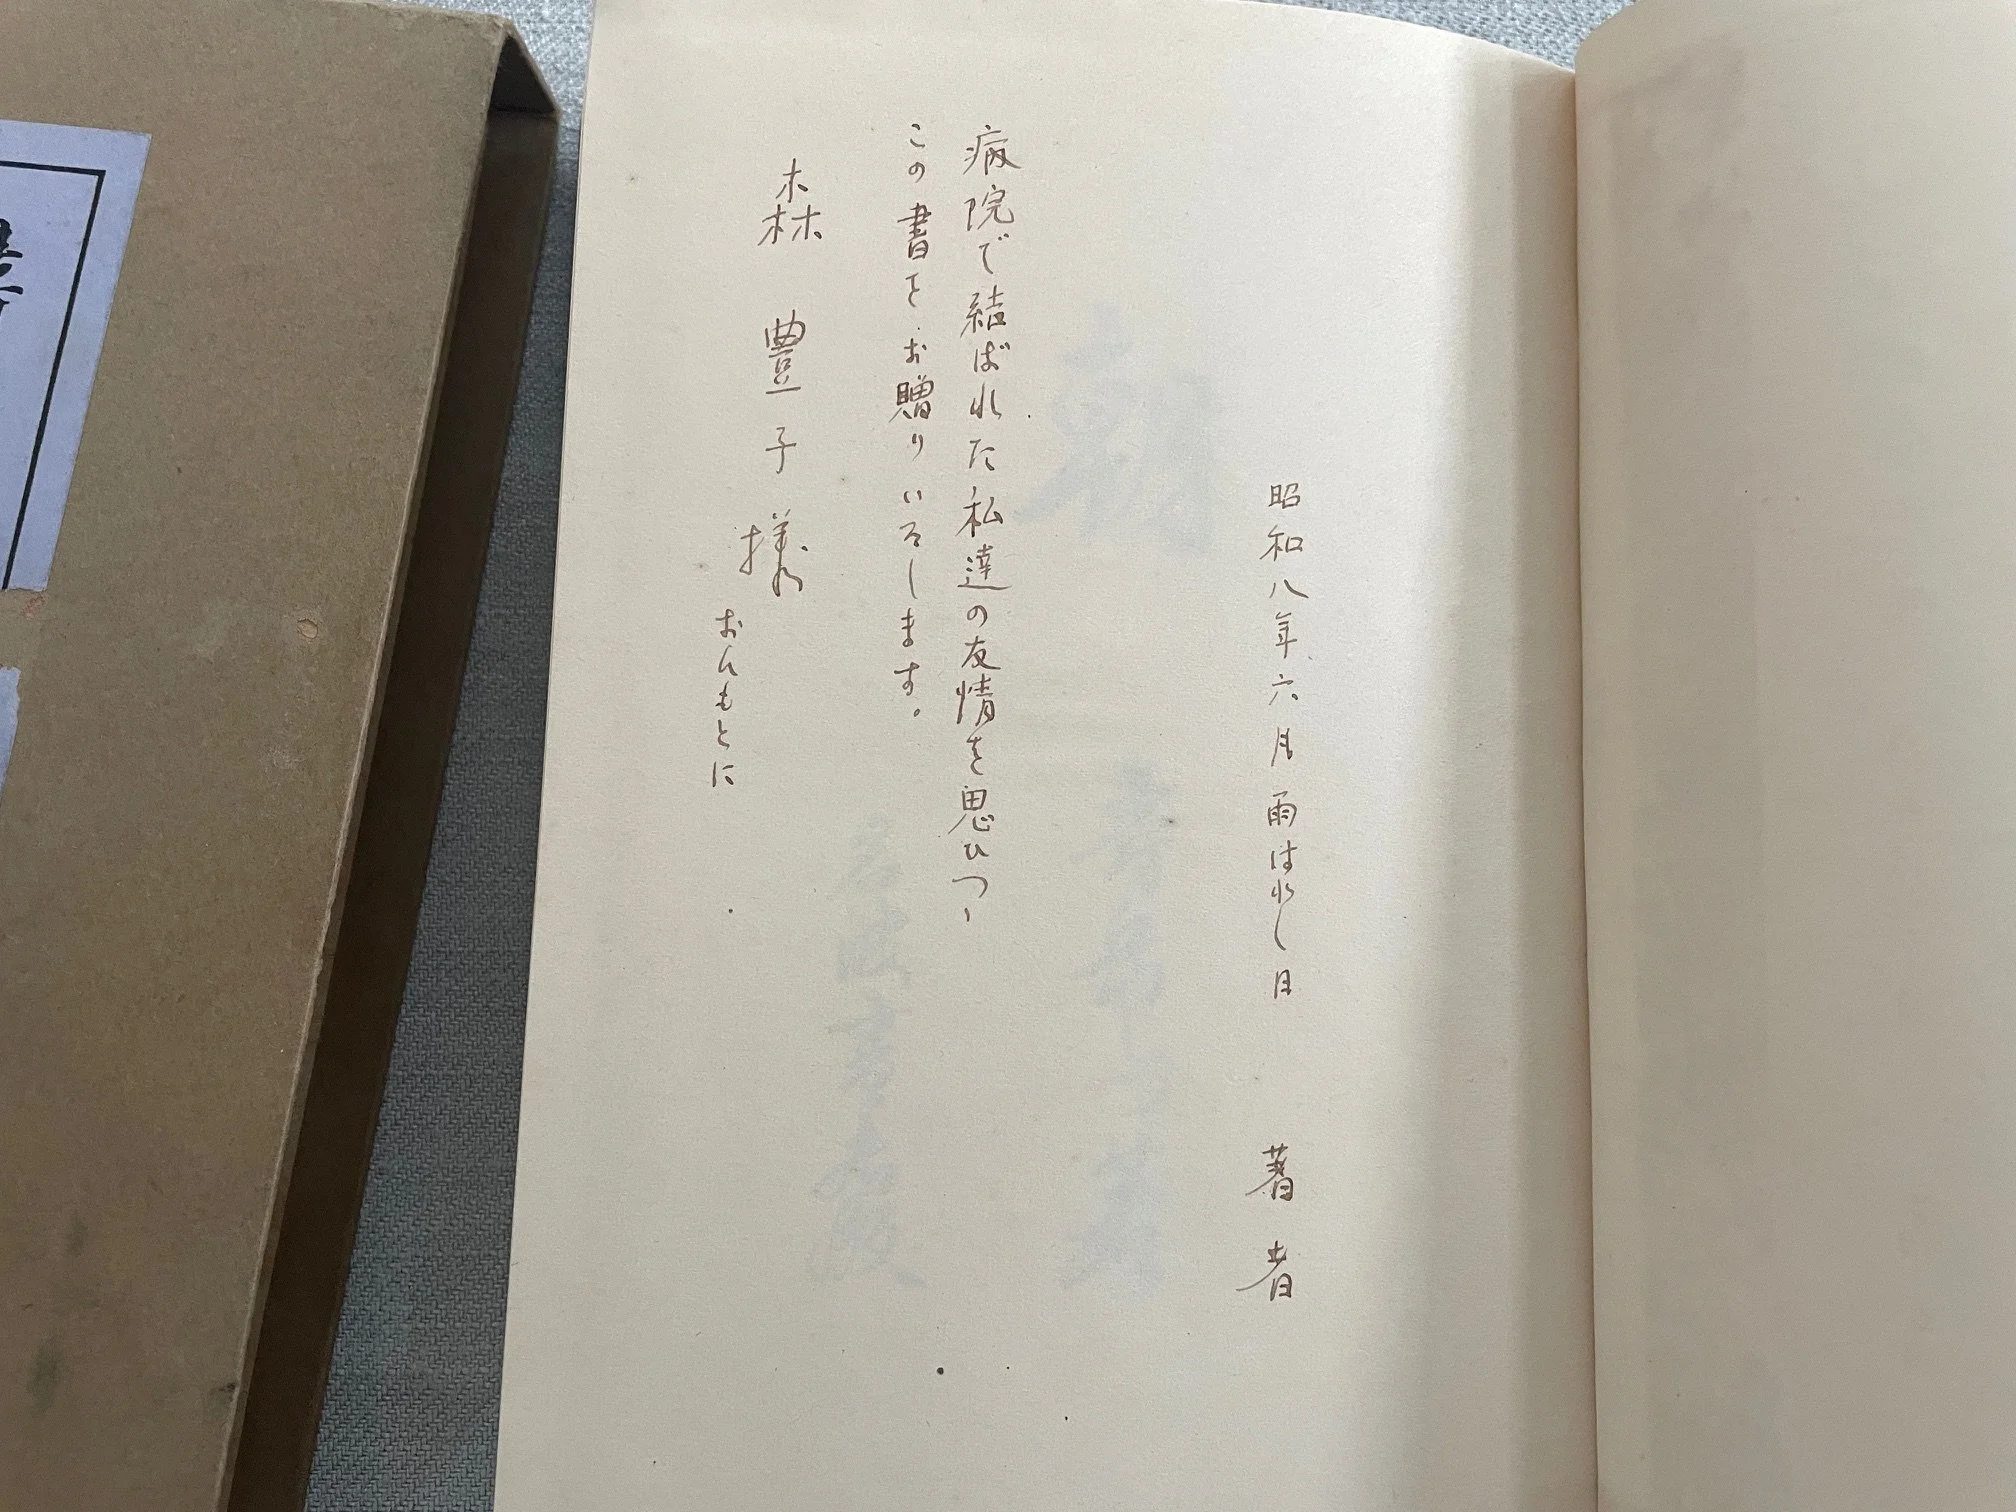 昭和八年六月雨はれし日　著者
病院で結ばれた私達の友情を思ひつゝ
この書をお贈りいたします。
森　豊子様
おんもとに